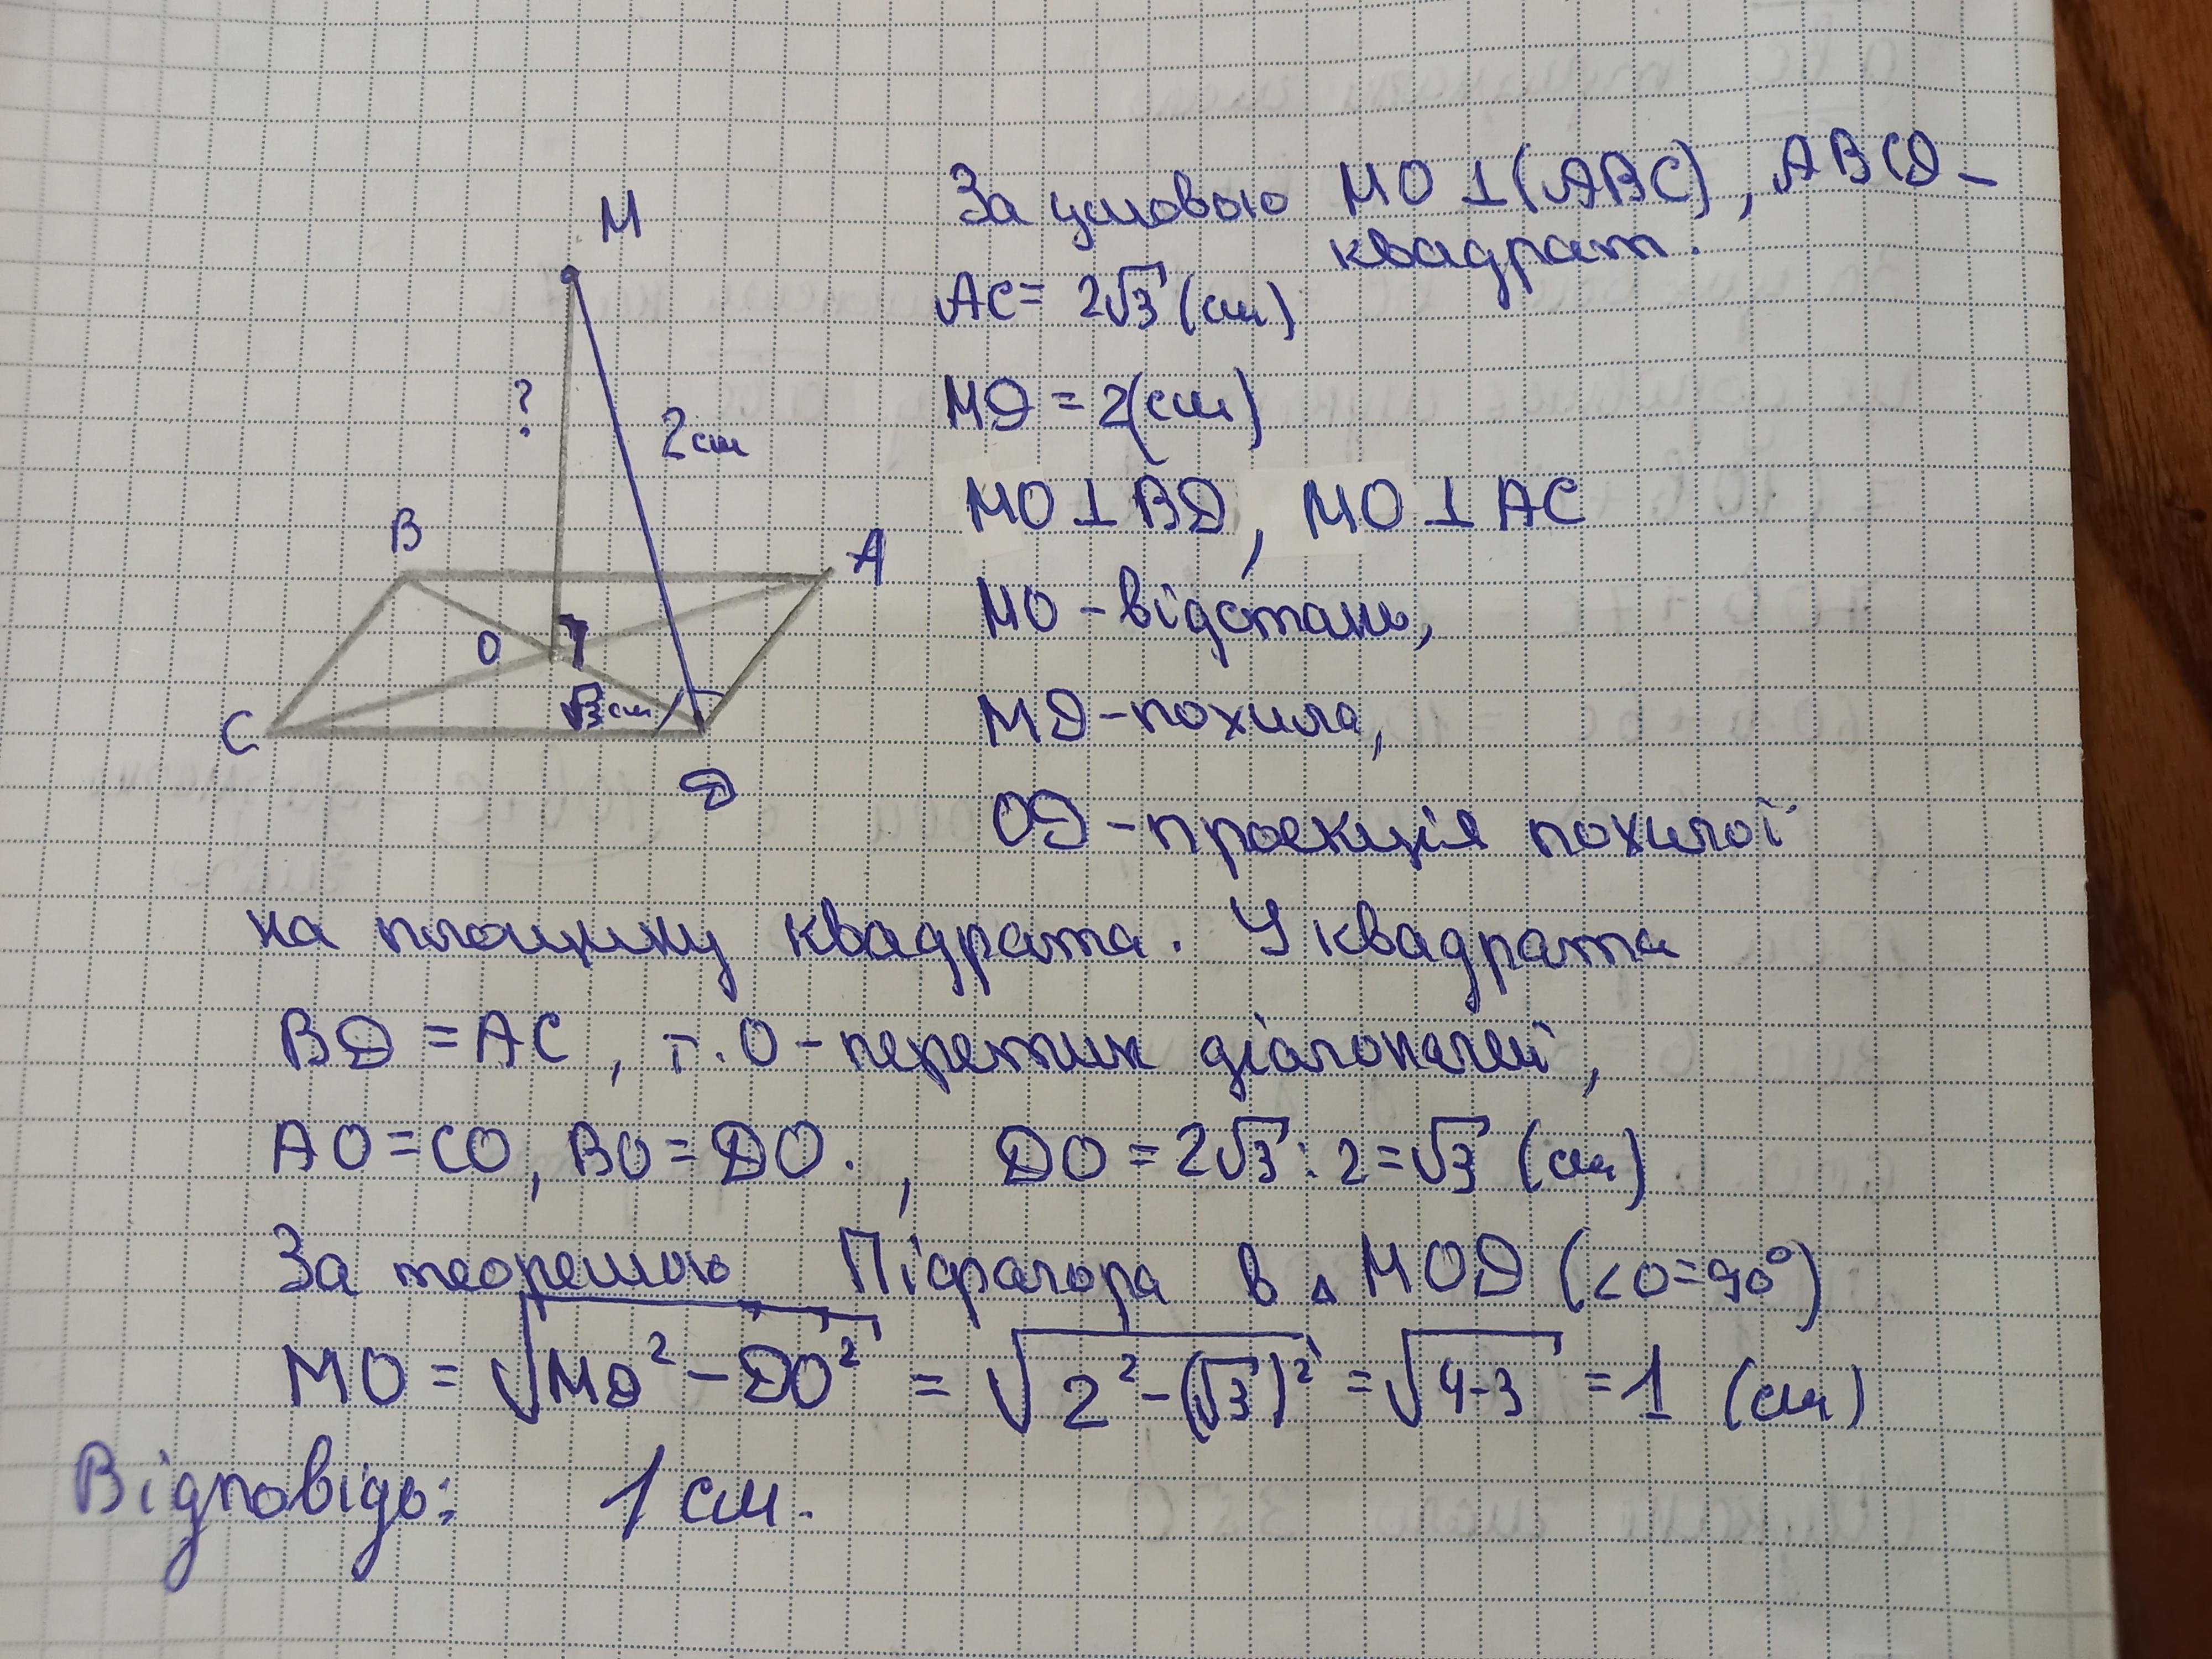 M
?
2 см
B
A
O
√3 см
C
D
За умовою MO ⊥ (ABC), ABCD –
квадрат.
AC = 2√3 (см)
MD = 2(см)
MO ⊥ BD, MO ⊥ AC
MO – відстань,
MD – похила,
OD – проекція похилої
на площину квадрата. У квадрата
BD = AC, т. O – перетин діагоналей,
AO = CO, BO = DO. , DO = 2√3 : 2 = √3 (см)
За теоремою Піфагора в △ MOD (∠O = 90°)
MO = √(MD² – DO²) = √(2² – (√3)²) = √(4-3) = 1 (см)
Відповідь: 1 см.